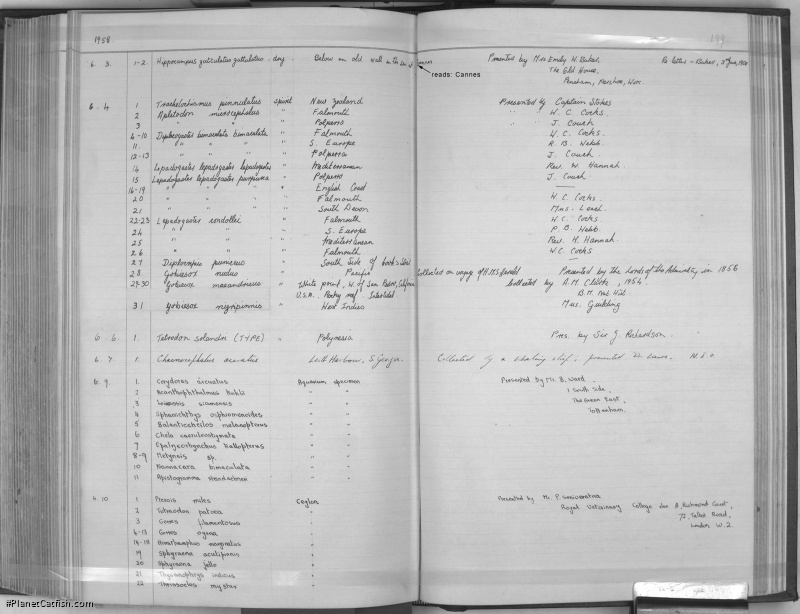 1958
6. 3. 1-2. Hippocampus guttulatus guttulatus - dry. Below an old wall in the Presented by Mrs Emily H. Baker. Re letter - Baker,
reads: Cannes
The Old House,
Pensham, Pershore, Worc.
6. 4 1 Trachelochismus pinnulatus spirit New Zealand Presented by Captain Stokes
2 Apletodon microcephalus " Falmouth " " W. C. Cocks.
3 " " " Polperro " " J. Couch
4-10 Diplecogaster bimaculata bimaculata " Falmouth W. C. Cocks.
11. " " " " S. Europe P. B. Webb.
12-13 " " " " Polperro J. Couch.
14 Lepadogaster lepadogaster lepadogaster " Mediterranean Rev. W. Hannah.
15 Lepadogaster lepadogaster purpurea " Polperro J. Couch.
16-19 " " " " English Coast
20 " " " " Falmouth W. C. Cocks.
21 " " " " South Devon Mus. Leach.
22-23 Lepadogaster candollei " Falmouth W. C. Cocks
24 " " " S. Europe P. B. Webb.
25 " " " Mediterranean Rev. H. Hannah.
26 " " " Falmouth W.C. Cocks
27 Diplocrepis puniceus " South Side of Cook's Strait
28. Gobiesox nudus " Pacific Collected on voyage of H.M.S. Herald Presented by the Lords of the Admiralty in 1856
29-30 Gobiesox maeandricus " White point, W. of San Pedro, California Collected by A.M. 1954,
U.S.A. Rocky reef Intertidal B.M. Nat Hist.
31 Gobiesox nigripinnis " West Indies Mus. Guilding
6. 6. 1. Tetrodon solandri (TYPE) " Polynesia Pres. by Sir J. Richardson.
6. 7. 1. Chaenocephalus aceratus Leith Harbour, S. Georgia. Collected by a whaling ship, presented
6. 9. 1. Corydoras arcuatus Aquarium specimen Presented by Mr. B. Ward,
2 Acanthophthalmus kuhli " " 1 South Side,
3 siamensis " " The Green East,
4 Sphaerichthys osphromenoides " " Tottenham.
5 Balantiocheilos melanopterus " "
6 Chela caeruleostigmata " "
7 Epalzeorhynchus kallopterus " "
8-9 Metynnis sp. " "
10 Nannacara bimaculata " "
11 Apistogramma steindachneri " "
6. 10 1 Pterois miles Ceylon Presented by Mr. P. Seneviratna
2 Tetraodon patoca " Royal Veterinary College Richmond Court,
3 Gerres filamentosus " 72, Talbot Road,
4-13 Gerres oyena " London W. 2.
14-18 Hemirhamphus marginatus "
19 Sphyraena acutipinnis "
20 Sphyraena jello "
21 Thysanophrys indicus "
22 Thrissocles mystax "
#PlanetCatfish.com